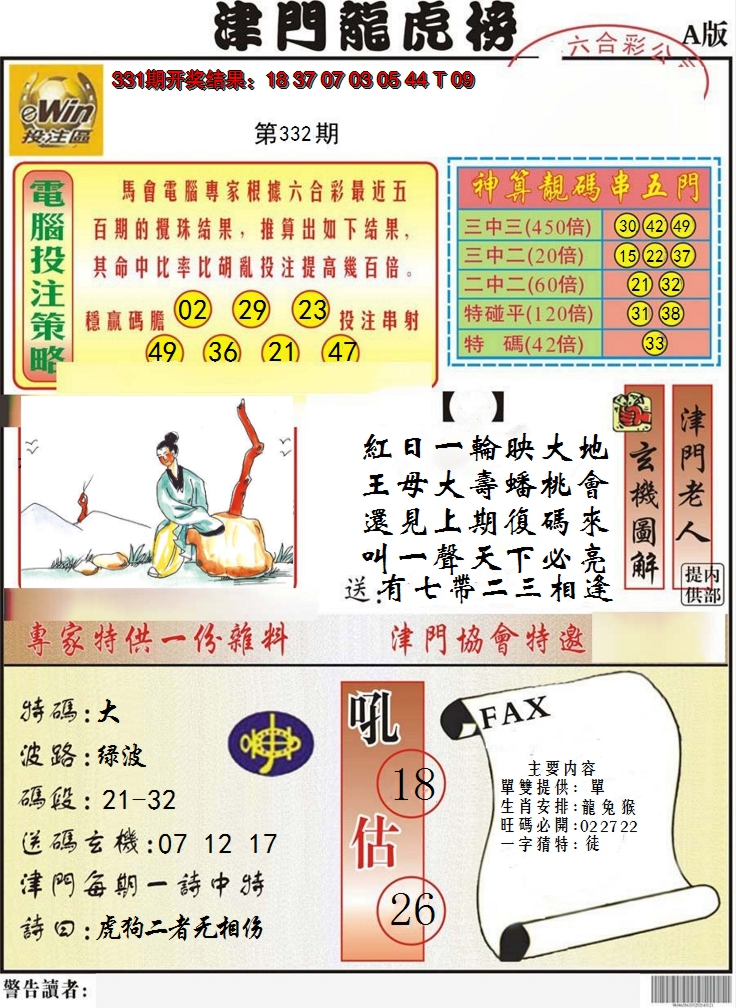 津門龍虎榜
六合彩公
A版
331期开奖结果：18 37 07 03 05 44 T 09
eWin
投注區
第332期
電腦投注策略
馬會電腦專家根據六合彩最近五
百期的攪珠结果，推算出如下结果，
其命中比率比胡亂投注提高幾百倍。
穩赢碼膽 02 29 23 投注串射
49 36 21 47
神算靚碼串五門
三中三(450倍) 30 42 49
三中二(20倍) 15 22 37
二中二(60倍) 21 32
特碰平(120倍) 31 38
特 碼(42倍) 33
【 】
紅日一輪映大地
王母大壽蟠桃會
還見上期復碼來
叫一聲天下必亮
送:有七帶二三相逢
玄機圖解
津門老人
内部提供
專家特供一份雜料
津門協會特邀
特碼:大
波路:绿波
碼段:21-32
送碼玄機:07 12 17
津門每期一詩中特
詩曰:虎狗二者无相伤
吼
18
估
26
FAX
主要内容
單雙提供：單
生肖安排:龍兔猴
旺碼必開:022722
一字猜特:徒
警告讀者: